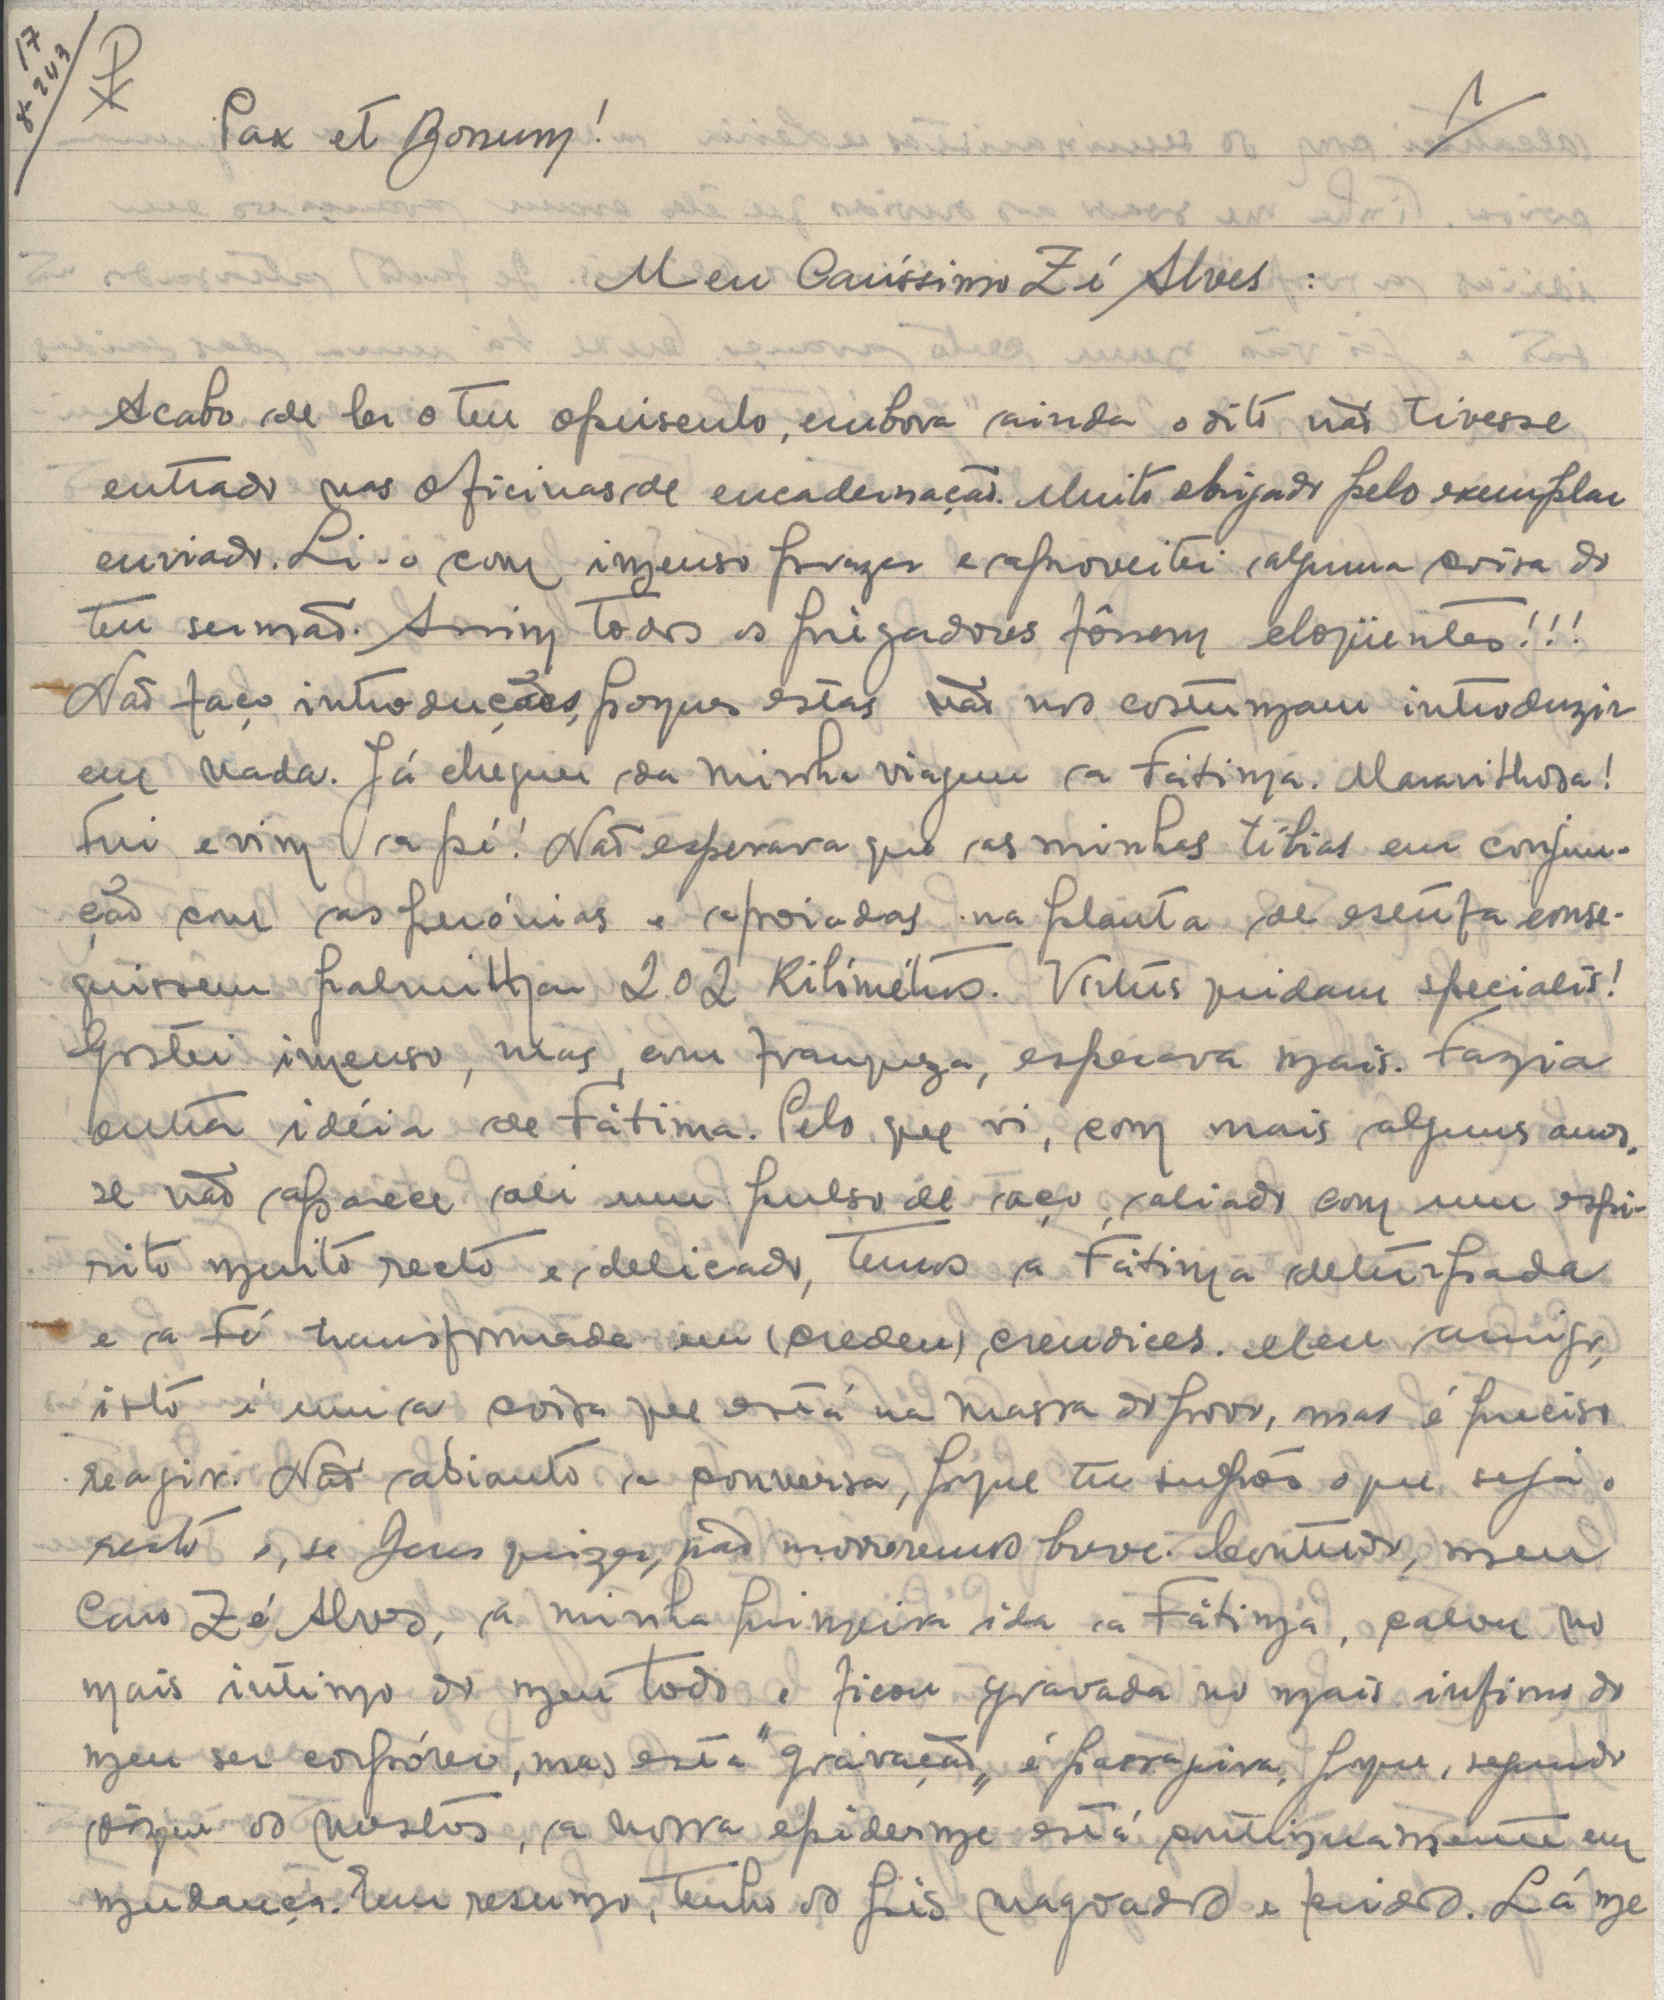 17
8-243
Pax et Bonum!
1
Meu Caríssimo Zé Alves:
Acabo de ler o teu opúsculo, embora ainda o dito não tivesse
entrado nas oficinas de encadernação. Muito obrigado pelo exemplar
enviado. Li-o com imenso prazer e aproveitei alguma coisa do
teu sermão. Assim todos os prègadores fôssem eloqüentes!!!
Não faço introduções, porque estas não nos costumam introduzir
em nada. Já cheguei da minha viagem a Fátima. Maravilhosa!
Fui e vim a pé! Não esperava que as minhas tíbias em conjun-
ção com as perónias e apoiadas na planta de esta conse-
guissem palmilhar 202 kilómetros. Virtus quidam specialis!
Gostei imenso, mas, com franqueza, esperava mais. Fazia
outra idéia de Fátima. Pelo que vi, com mais alguns anos,
se não aparece ali um pulso de aço, aliado com um espí-
rito muito recto e delicado, temos a Fátima deturpada
e a Fé transformada em (creden) crendices. Meu amigo,
isto é uma coisa que está na massa do povo, mas é preciso
reagir. Não adianto a conversa, porque tu supões o que seja o
resto e, se Deus quizer, não morreremos breve. Contudo, meu
Caro Zé Alves, a minha primeira ida a Fátima, calou no
mais íntimo do meu todo e ficou gravada no mais ínfimo do
meu ser corpóreo, mas esta "gravação„ é passageira, porque, segundo
dizem os mestres, a nossa epiderme está continuamente em
mudança. Em resumo, tenho os pés magoados e feridos. Lá me